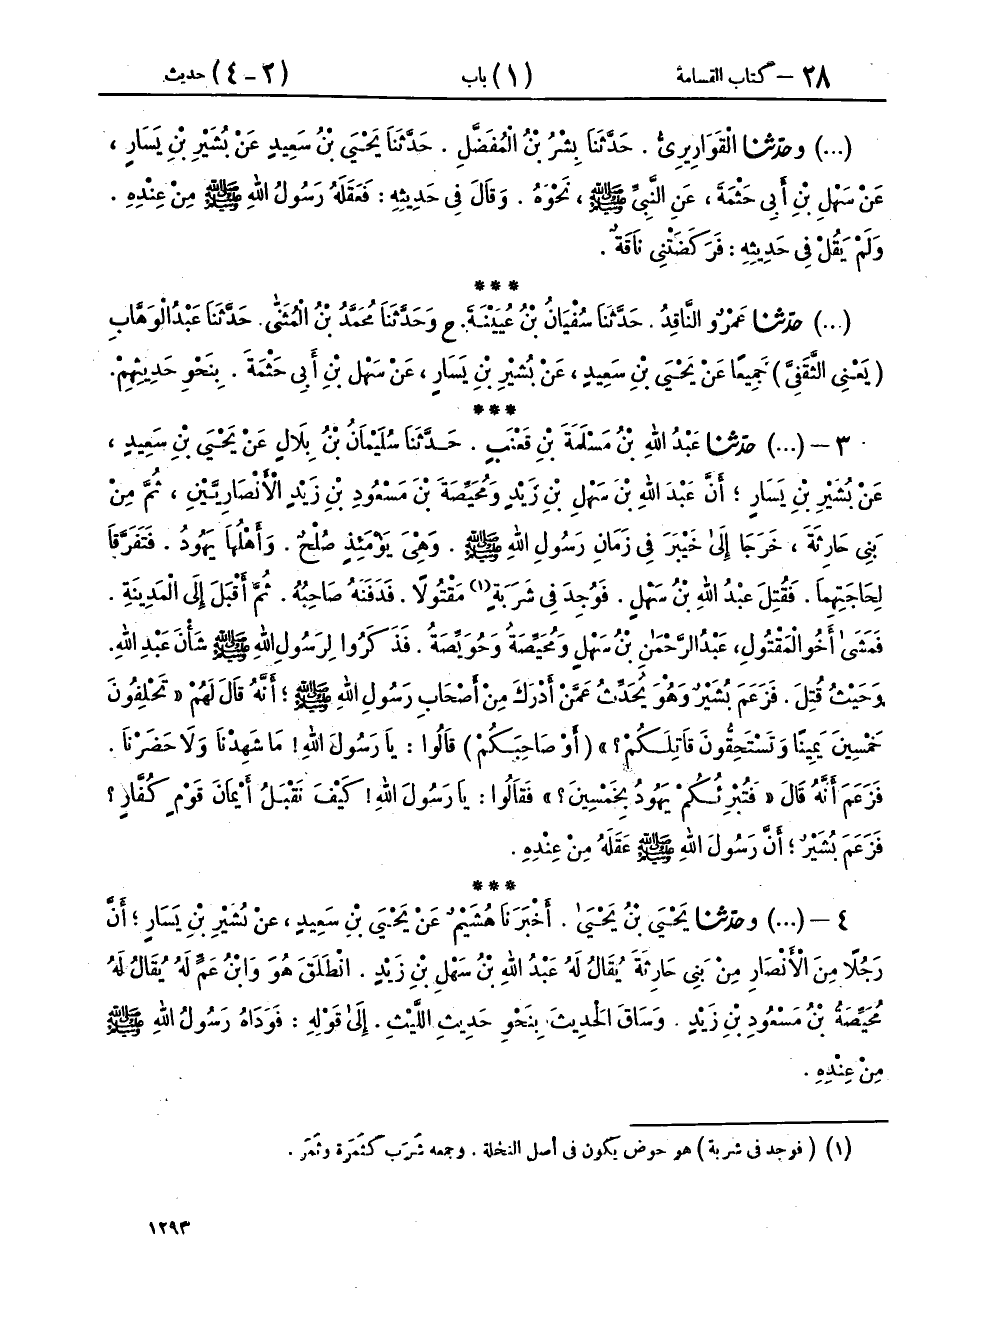 ٢٨ – كتاب القسامة (١) باب (٢ – ٤) حديث
(...) وحدّثنا الْقَوَارِيرِىُّ . حَدَّثَنَا بِشْرُ بْنُ الْمُفَضَّلِ . حَدَّثَنَا يَحْيَىٰ بْنُ سَعِيدٍ عَنْ بُشَيْرِ بْنِ يَسَارٍ ،
عَنْ سَهْلِ بْنِ أَبِى حَثْمَةَ ، عَنِ النَّبِىِّ ﷺ ، نَحْوَهُ . وَقَالَ فِى حَدِيثِهِ : فَعَقَلَهُ رَسُولُ اللهِ ﷺ مِنْ عِنْدِهِ .
وَلَمْ يَقُلْ فِى حَدِيثِهِ : فَرَكَضَتْنِى نَاقَةٌ .
***
(...) حدّثنا عَمْرٌو النَّاقِدُ . حَدَّثَنَا سُفْيَانُ بْنُ عُيَيْنَةَ . ح وَحَدَّثَنَا مُحَمَّدُ بْنُ الْمُثَنَّىٰ . حَدَّثَنَا عَبْدُ الْوَهَّابِ
( يَعْنِى الثَّقَفِىَّ ) جَمِيعًا عَنْ يَحْيَىٰ بْنِ سَعِيدٍ ، عَنْ بُشَيْرِ بْنِ يَسَارٍ ، عَنْ سَهْلِ بْنِ أَبِى حَثْمَةَ . بِنَحْوِ حَدِيثِهِمْ .
***
٣ – (...) حدّثنا عَبْدُ اللهِ بْنُ مَسْلَمَةَ بْنِ قَعْنَبٍ . حَدَّثَنَا سُلَيْمَانُ بْنُ بِلَالٍ عَنْ يَحْيَىٰ بْنِ سَعِيدٍ ،
عَنْ بُشَيْرِ بْنِ يَسَارٍ ؛ أَنَّ عَبْدَ اللهِ بْنَ سَهْلِ بْنِ زَيْدٍ وَمُحَيِّصَةَ بْنَ مَسْعُودِ بْنِ زَيْدٍ الْأَنْصَارِيَّيْنِ ، ثُمَّ مِنْ
بَنِى حَارِثَةَ ، خَرَجَا إِلَىٰ خَيْبَرَ فِى زَمَانِ رَسُولِ اللهِ ﷺ . وَهِىَ يَوْمَئِذٍ صُلْحٌ . وَأَهْلُهَا يَهُودُ . فَتَفَرَّقَا
لِحَاجَتِهِمَا . فَقُتِلَ عَبْدُ اللهِ بْنُ سَهْلٍ . فَوُجِدَ فِى شَرَبَةٍ(١) مَقْتُولًا . فَدَفَنَهُ صَاحِبُهُ . ثُمَّ أَقْبَلَ إِلَى الْمَدِينَةِ .
فَمَشَىٰ أَخُو الْمَقْتُولِ، عَبْدُ الرَّحْمَٰنِ بْنُ سَهْلٍ وَمُحَيِّصَةُ وَحُوَيِّصَةُ . فَذَكَرُوا لِرَسُولِ اللهِ ﷺ شَأْنَ عَبْدِ اللهِ .
وَحَيْثُ قُتِلَ . فَزَعَمَ بُشَيْرٌ وَهُوَ يُحَدِّثُ عَمَّنْ أَدْرَكَ مِنْ أَصْحَابِ رَسُولِ اللهِ ﷺ ؛ أَنَّهُ قَالَ لَهُمْ « تَحْلِفُونَ
خَمْسِينَ يَمِينًا وَتَسْتَحِقُّونَ قَاتِلَكُمْ ؟ » ( أَوْ صَاحِبَكُمْ ) قَالُوا : يَا رَسُولَ اللهِ ! مَا شَهِدْنَا وَلَا حَضَرْنَا .
فَزَعَمَ أَنَّهُ قَالَ « فَتُبْرِئُكُمْ يَهُودُ بِخَمْسِينَ ؟ » فَقَالُوا : يَا رَسُولَ اللهِ ! كَيْفَ نَقْبَلُ أَيْمَانَ قَوْمٍ كُفَّارٍ ؟
فَزَعَمَ بُشَيْرٌ ؛ أَنَّ رَسُولَ اللهِ ﷺ عَقَلَهُ مِنْ عِنْدِهِ .
***
٤ – (...) وحدّثنا يَحْيَىٰ بْنُ يَحْيَىٰ . أَخْبَرَنَا هُشَيْمٌ عَنْ يَحْيَىٰ بْنِ سَعِيدٍ ، عَنْ بُشَيْرِ بْنِ يَسَارٍ ؛ أَنَّ
رَجُلًا مِنَ الْأَنْصَارِ مِنْ بَنِى حَارِثَةَ يُقَالُ لَهُ عَبْدُ اللهِ بْنُ سَهْلِ بْنِ زَيْدٍ . انْطَلَقَ هُوَ وَابْنُ عَمٍّ لَهُ يُقَالُ لَهُ
مُحَيِّصَةُ بْنُ مَسْعُودِ بْنِ زَيْدٍ . وَسَاقَ الْحَدِيثَ بِنَحْوِ حَدِيثِ اللَّيْثِ . إِلَىٰ قَوْلِهِ : فَوَدَاهُ رَسُولُ اللهِ ﷺ
مِنْ عِنْدِهِ .
(١) ( فوجد فى شربة ) هو حوض يكون فى أصل النخلة . وجمعه شَرَب كثَمَرة وثَمَر .
١٢٩٣